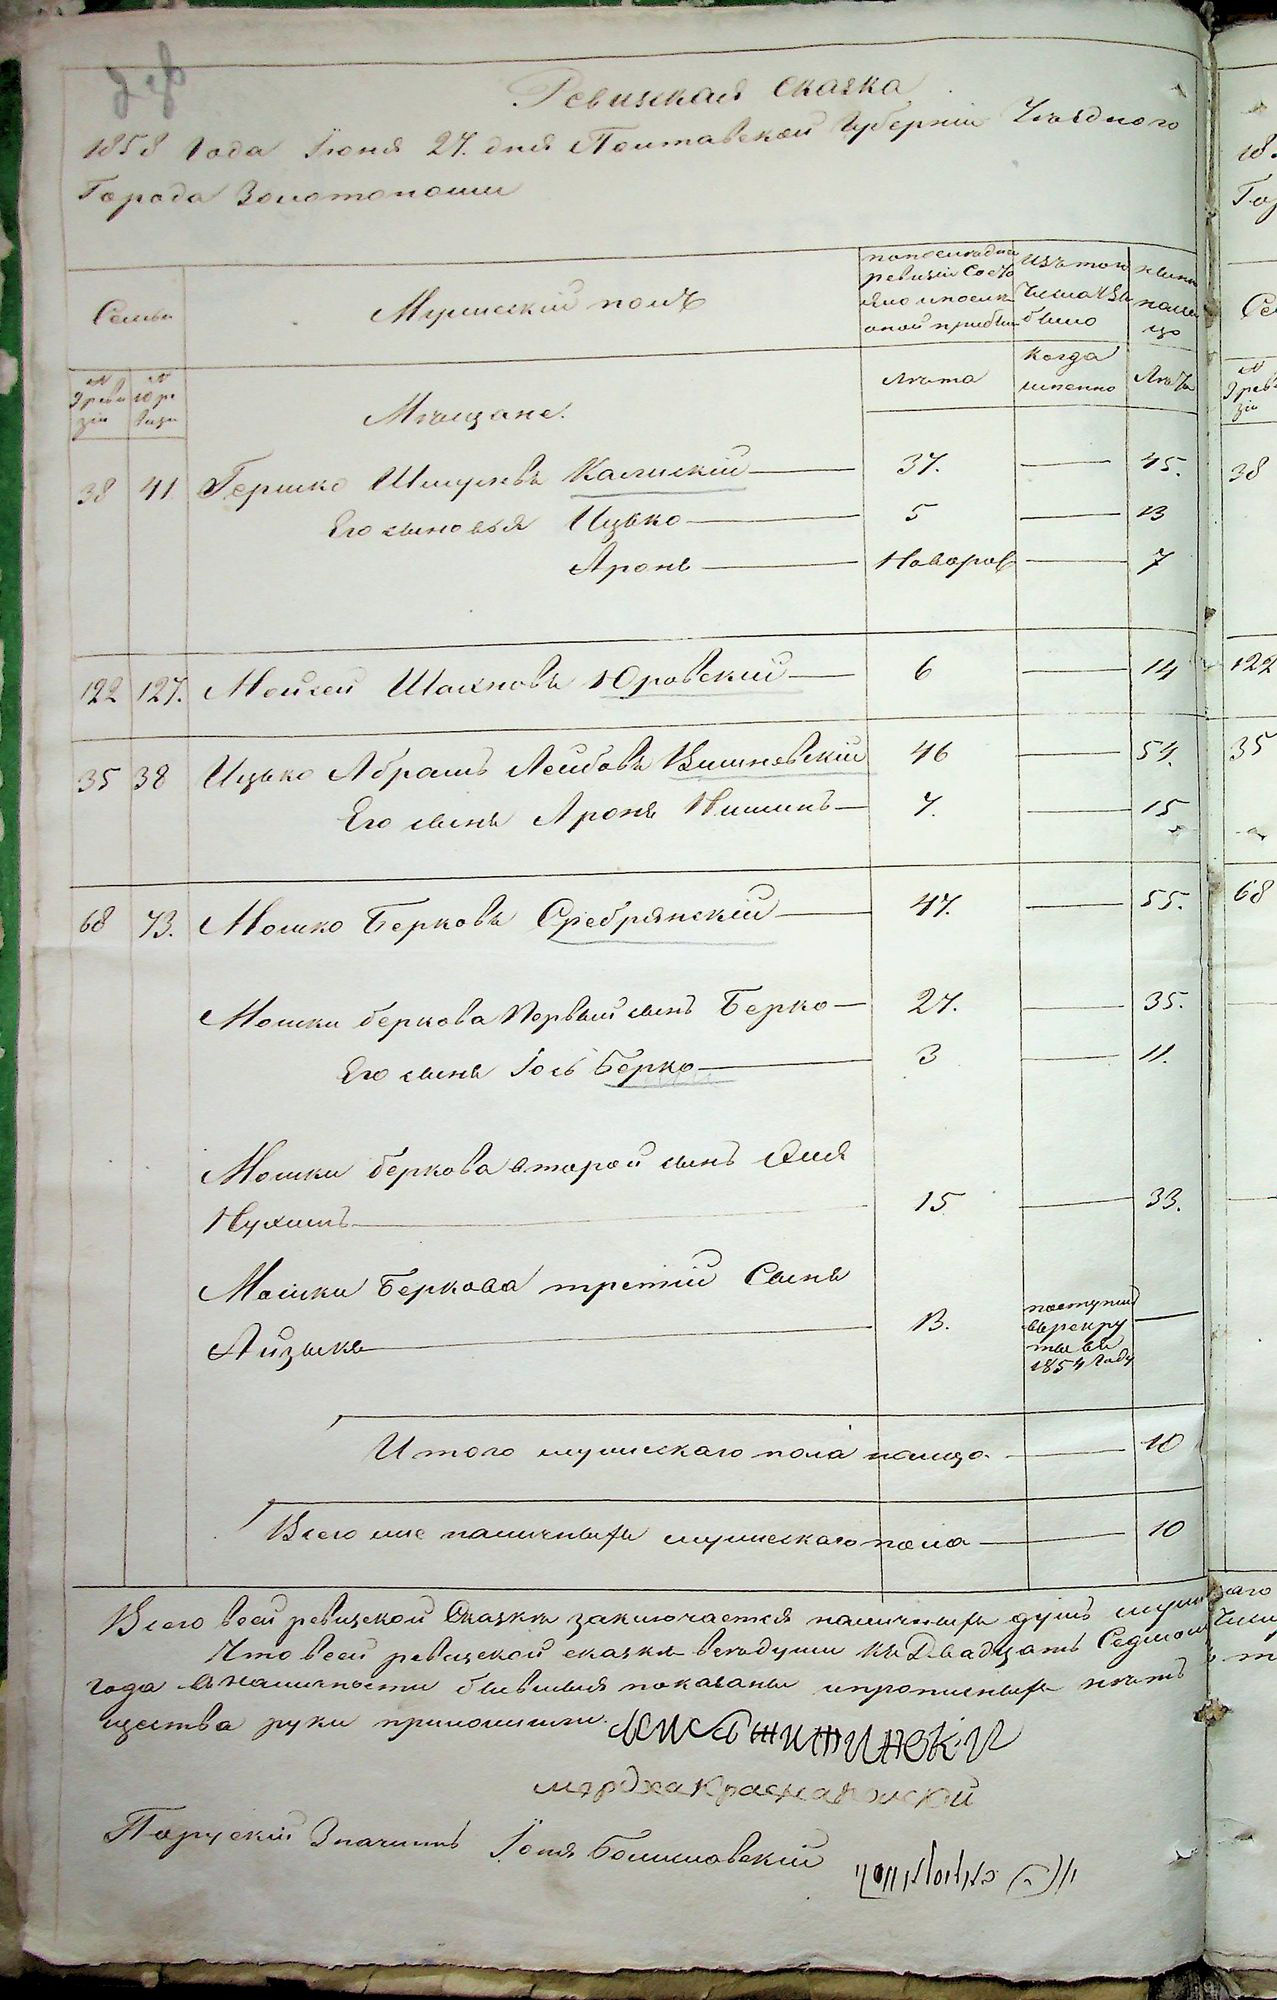 Ревизская Сказка
1858 года Іюня 27. дня Полтавской Губерніи Уѣзднаго
Города Золотоноши
Семьи
Мужескій полъ
по последней ревизіи состояло и после оной прибыло
изъ того числа выбыло
ныне на лицо
№ 9 ревизіи
№ 10 ревизіи
Мѣщане.
Лѣта
Когда именно
Лѣта
38 41 Гершко Шмулевъ Калискій 37. 45.
Его сыновья Ицько 5 13
Аронъ Новорож 7
122 127. Мойсей Шахновъ Юровскій 6 14
35 38 Ицько Абрамъ Лейбовъ Вишневскій 46 54.
Его сынъ Аронъ Нишинъ 7. 15
68 73. Мошко Берковъ Сребрянскій 47. 55.
Мошки Беркова Первый сынъ Берко 27. 35.
Его сынъ Іось Берко 3 11.
Мошки Беркова второй сынъ
Нухимъ 15 33.
Мошки Беркова третій Сынъ
Айзыкъ 13. поступилъ въ рекруты въ 1854 году
Итого мужескаго пола налицо 10
Всего же наличныхъ мужескаго пола 10
Всего всей ревизской Сказкѣ заключается наличныхъ душъ
Что всей ревизской сказкѣ вѣ душы къ Двадцать Седмому
года в наличности бывшыя показаны и прописныхъ нѣтъ
щества руки приложили.
Порускій Значитъ Іопя